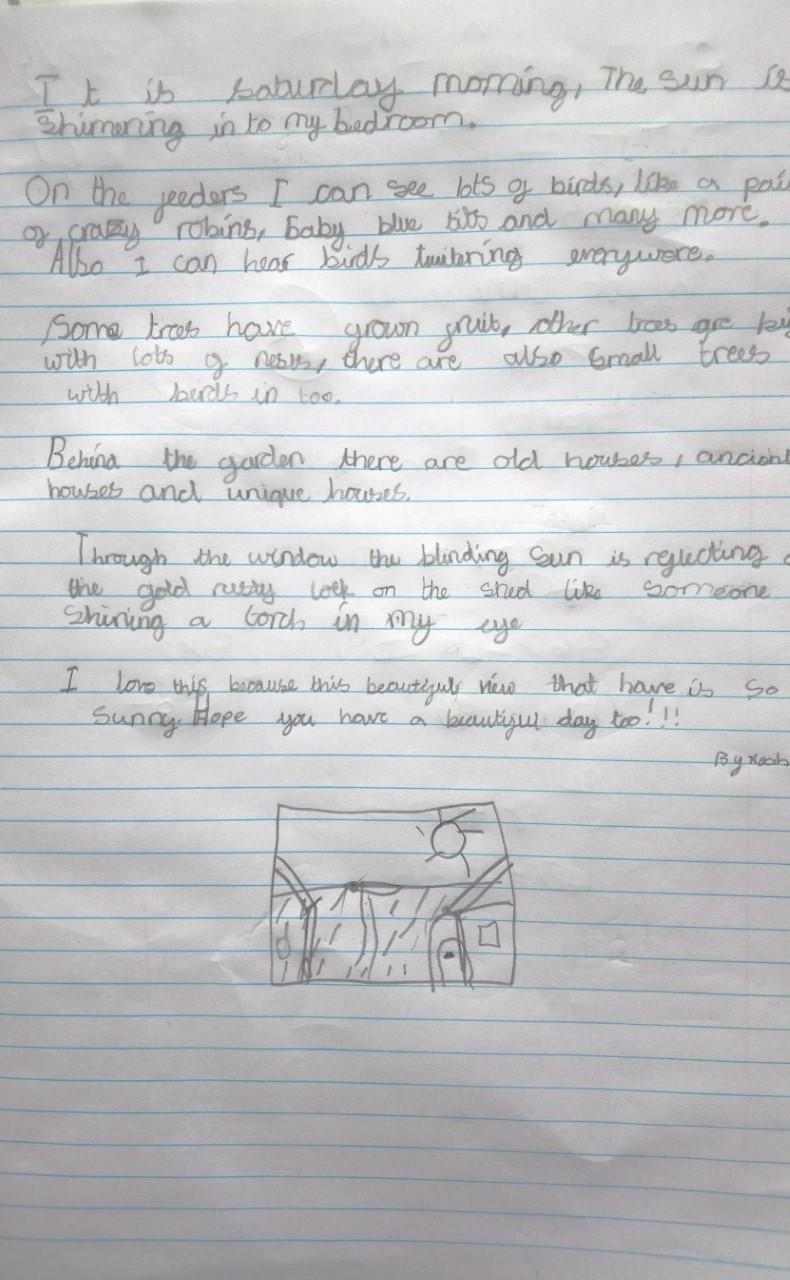 It is saturday morning, The sun is
Shimering in to my bedroom.
On the feeders I can see lots of birds, like a pai
of crazy robins, baby blue tits and many more.
Also I can hear birds twitering everywere.
Some trees have grown fruit, other trees are
with lots of nests, there are also small trees
with birds in too.
Behind the garden there are old houses, ancient
houses and unique houses.
Through the window the blinding sun is reflecting
the gold rusty lock on the shed like someone
Shining a torch in my eye
I love this, because this beautiful view that have is so
sunny. Hope you have a beautiful day too!!!
By